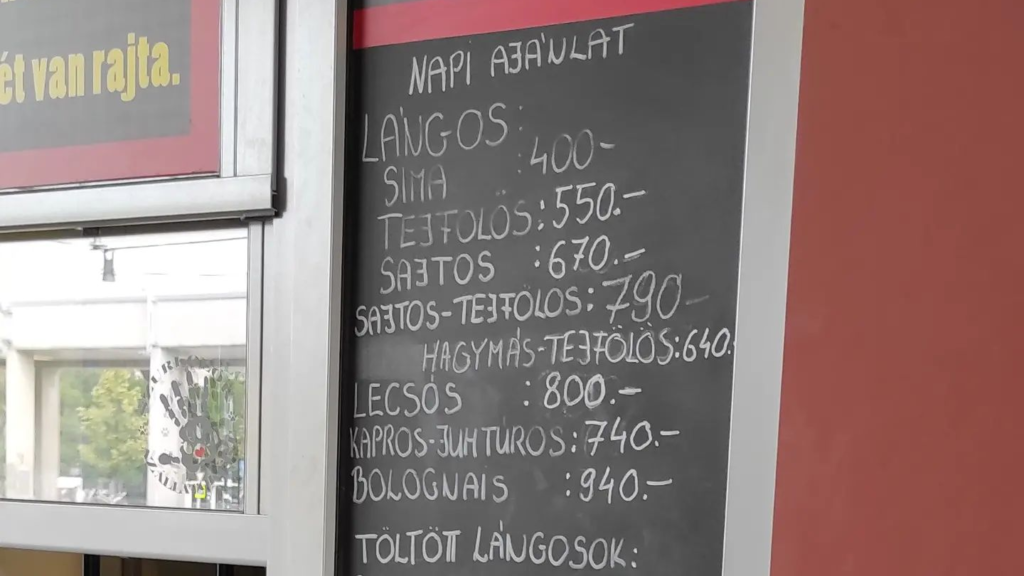 ét van rajta.
NAPI AJÁNLAT
LÁNGOS:
SIMA :400-
TEJFÖLÖS :550.-
SAJTOS :670.-
SAJTOS-TEJFÖLÖS: 790-
HAGYMÁS-TEJFÖLÖS:640.
LECSÓS :800.-
KAPROS-JUHTÚRÓS :740.-
BOLOGNAIS :940.-
TÖLTÖTT LÁNGOSOK: